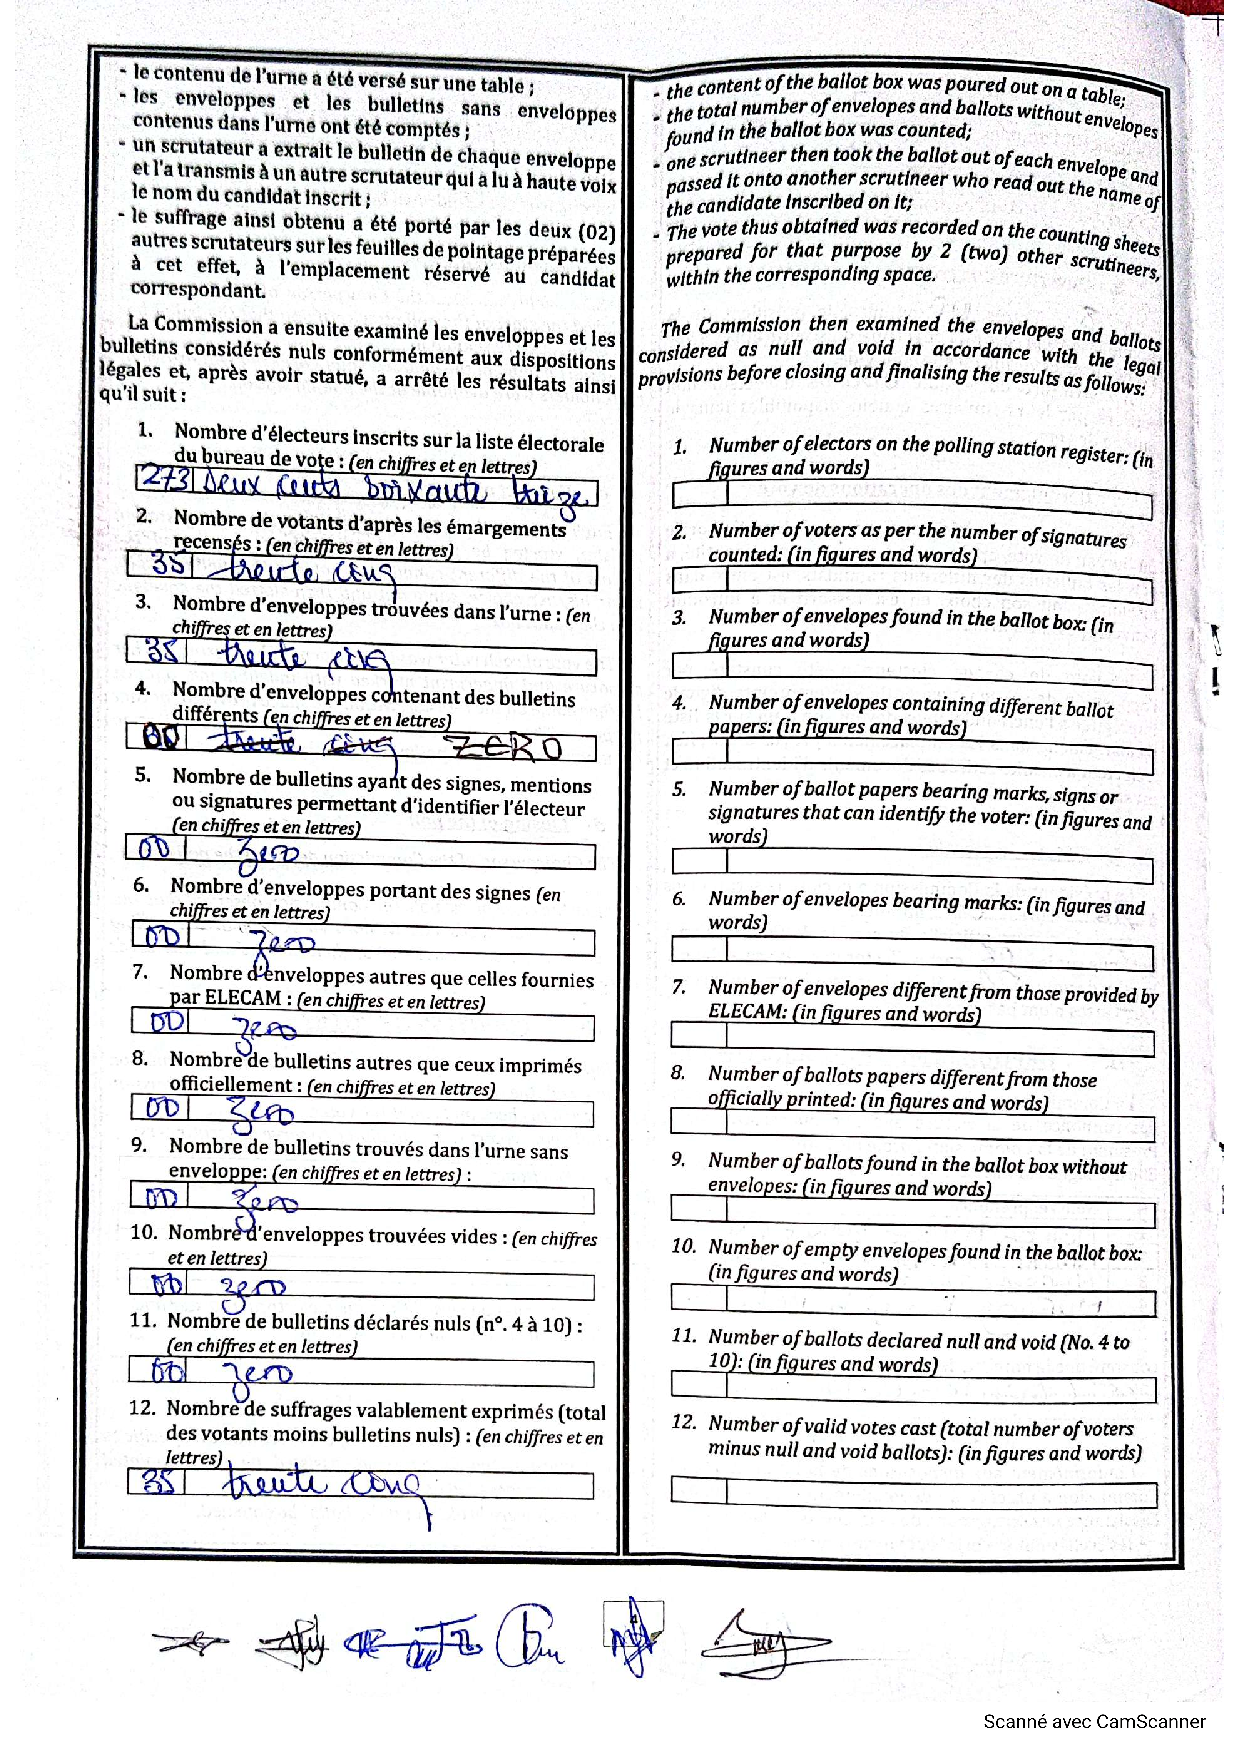 - le contenu de l'urne a été versé sur une table ;
- les enveloppes et les bulletins sans enveloppes
contenus dans l'urne ont été comptés ;
- un scrutateur a extrait le bulletin de chaque enveloppe
et l'a transmis à un autre scrutateur qui a lu à haute voix
le nom du candidat inscrit ;
- le suffrage ainsi obtenu a été porté par les deux (02)
autres scrutateurs sur les feuilles de pointage préparées
à cet effet, à l'emplacement réservé au candidat
correspondant.
La Commission a ensuite examiné les enveloppes et les
bulletins considérés nuls conformément aux dispositions
légales et, après avoir statué, a arrêté les résultats ainsi
qu'il suit :
1. Nombre d'électeurs inscrits sur la liste électorale
du bureau de vote : (en chiffres et en lettres)
273 Deux cents soixante treize
2. Nombre de votants d'après les émargements
recensés : (en chiffres et en lettres)
35 trente cinq
3. Nombre d'enveloppes trouvées dans l'urne : (en
chiffres et en lettres)
35 trente cinq
4. Nombre d'enveloppes contenant des bulletins
différents (en chiffres et en lettres)
00 trente cinq ZERO
5. Nombre de bulletins ayant des signes, mentions
ou signatures permettant d'identifier l'électeur
(en chiffres et en lettres)
00 zero
6. Nombre d'enveloppes portant des signes (en
chiffres et en lettres)
00 zero
7. Nombre d'enveloppes autres que celles fournies
par ELECAM : (en chiffres et en lettres)
00 zero
8. Nombre de bulletins autres que ceux imprimés
officiellement : (en chiffres et en lettres)
00 zero
9. Nombre de bulletins trouvés dans l'urne sans
enveloppe: (en chiffres et en lettres) :
00 zero
10. Nombre d'enveloppes trouvées vides : (en chiffres
et en lettres)
00 zero
11. Nombre de bulletins déclarés nuls (n°. 4 à 10) :
(en chiffres et en lettres)
00 zero
12. Nombre de suffrages valablement exprimés (total
des votants moins bulletins nuls) : (en chiffres et en
lettres)
35 trente cinq
- the content of the ballot box was poured out on a table;
- the total number of envelopes and ballots without envelopes
found in the ballot box was counted;
- one scrutineer then took the ballot out of each envelope and
passed it onto another scrutineer who read out the name of
the candidate inscribed on it;
- The vote thus obtained was recorded on the counting sheets
prepared for that purpose by 2 (two) other scrutineers,
within the corresponding space.
The Commission then examined the envelopes and ballots
considered as null and void in accordance with the legal
provisions before closing and finalising the results as follows:
1. Number of electors on the polling station register: (in
figures and words)
2. Number of voters as per the number of signatures
counted: (in figures and words)
3. Number of envelopes found in the ballot box: (in
figures and words)
4. Number of envelopes containing different ballot
papers: (in figures and words)
5. Number of ballot papers bearing marks, signs or
signatures that can identify the voter: (in figures and
words)
6. Number of envelopes bearing marks: (in figures and
words)
7. Number of envelopes different from those provided by
ELECAM: (in figures and words)
8. Number of ballots papers different from those
officially printed: (in figures and words)
9. Number of ballots found in the ballot box without
envelopes: (in figures and words)
10. Number of empty envelopes found in the ballot box:
(in figures and words)
11. Number of ballots declared null and void (No. 4 to
10): (in figures and words)
12. Number of valid votes cast (total number of voters
minus null and void ballots): (in figures and words)
Scanné avec CamScanner